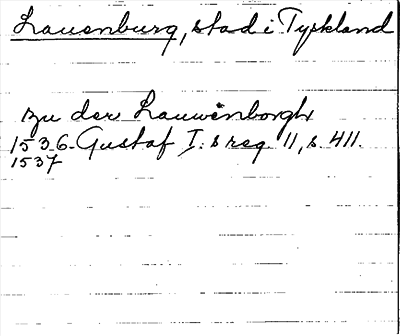 Lauenburg, stad i Tyskland
zu der Lauwenborgh
1536. Gustaf I:s reg. 11, s. 411.
1537